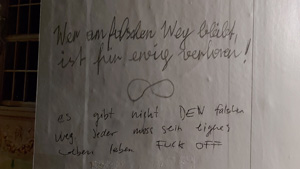 Wer am falschen Weg bleibt,
ist für ewig verloren!
es gibt nicht DEN falschen
weg jeder muss sein eignes
leben leben FUCK OFF